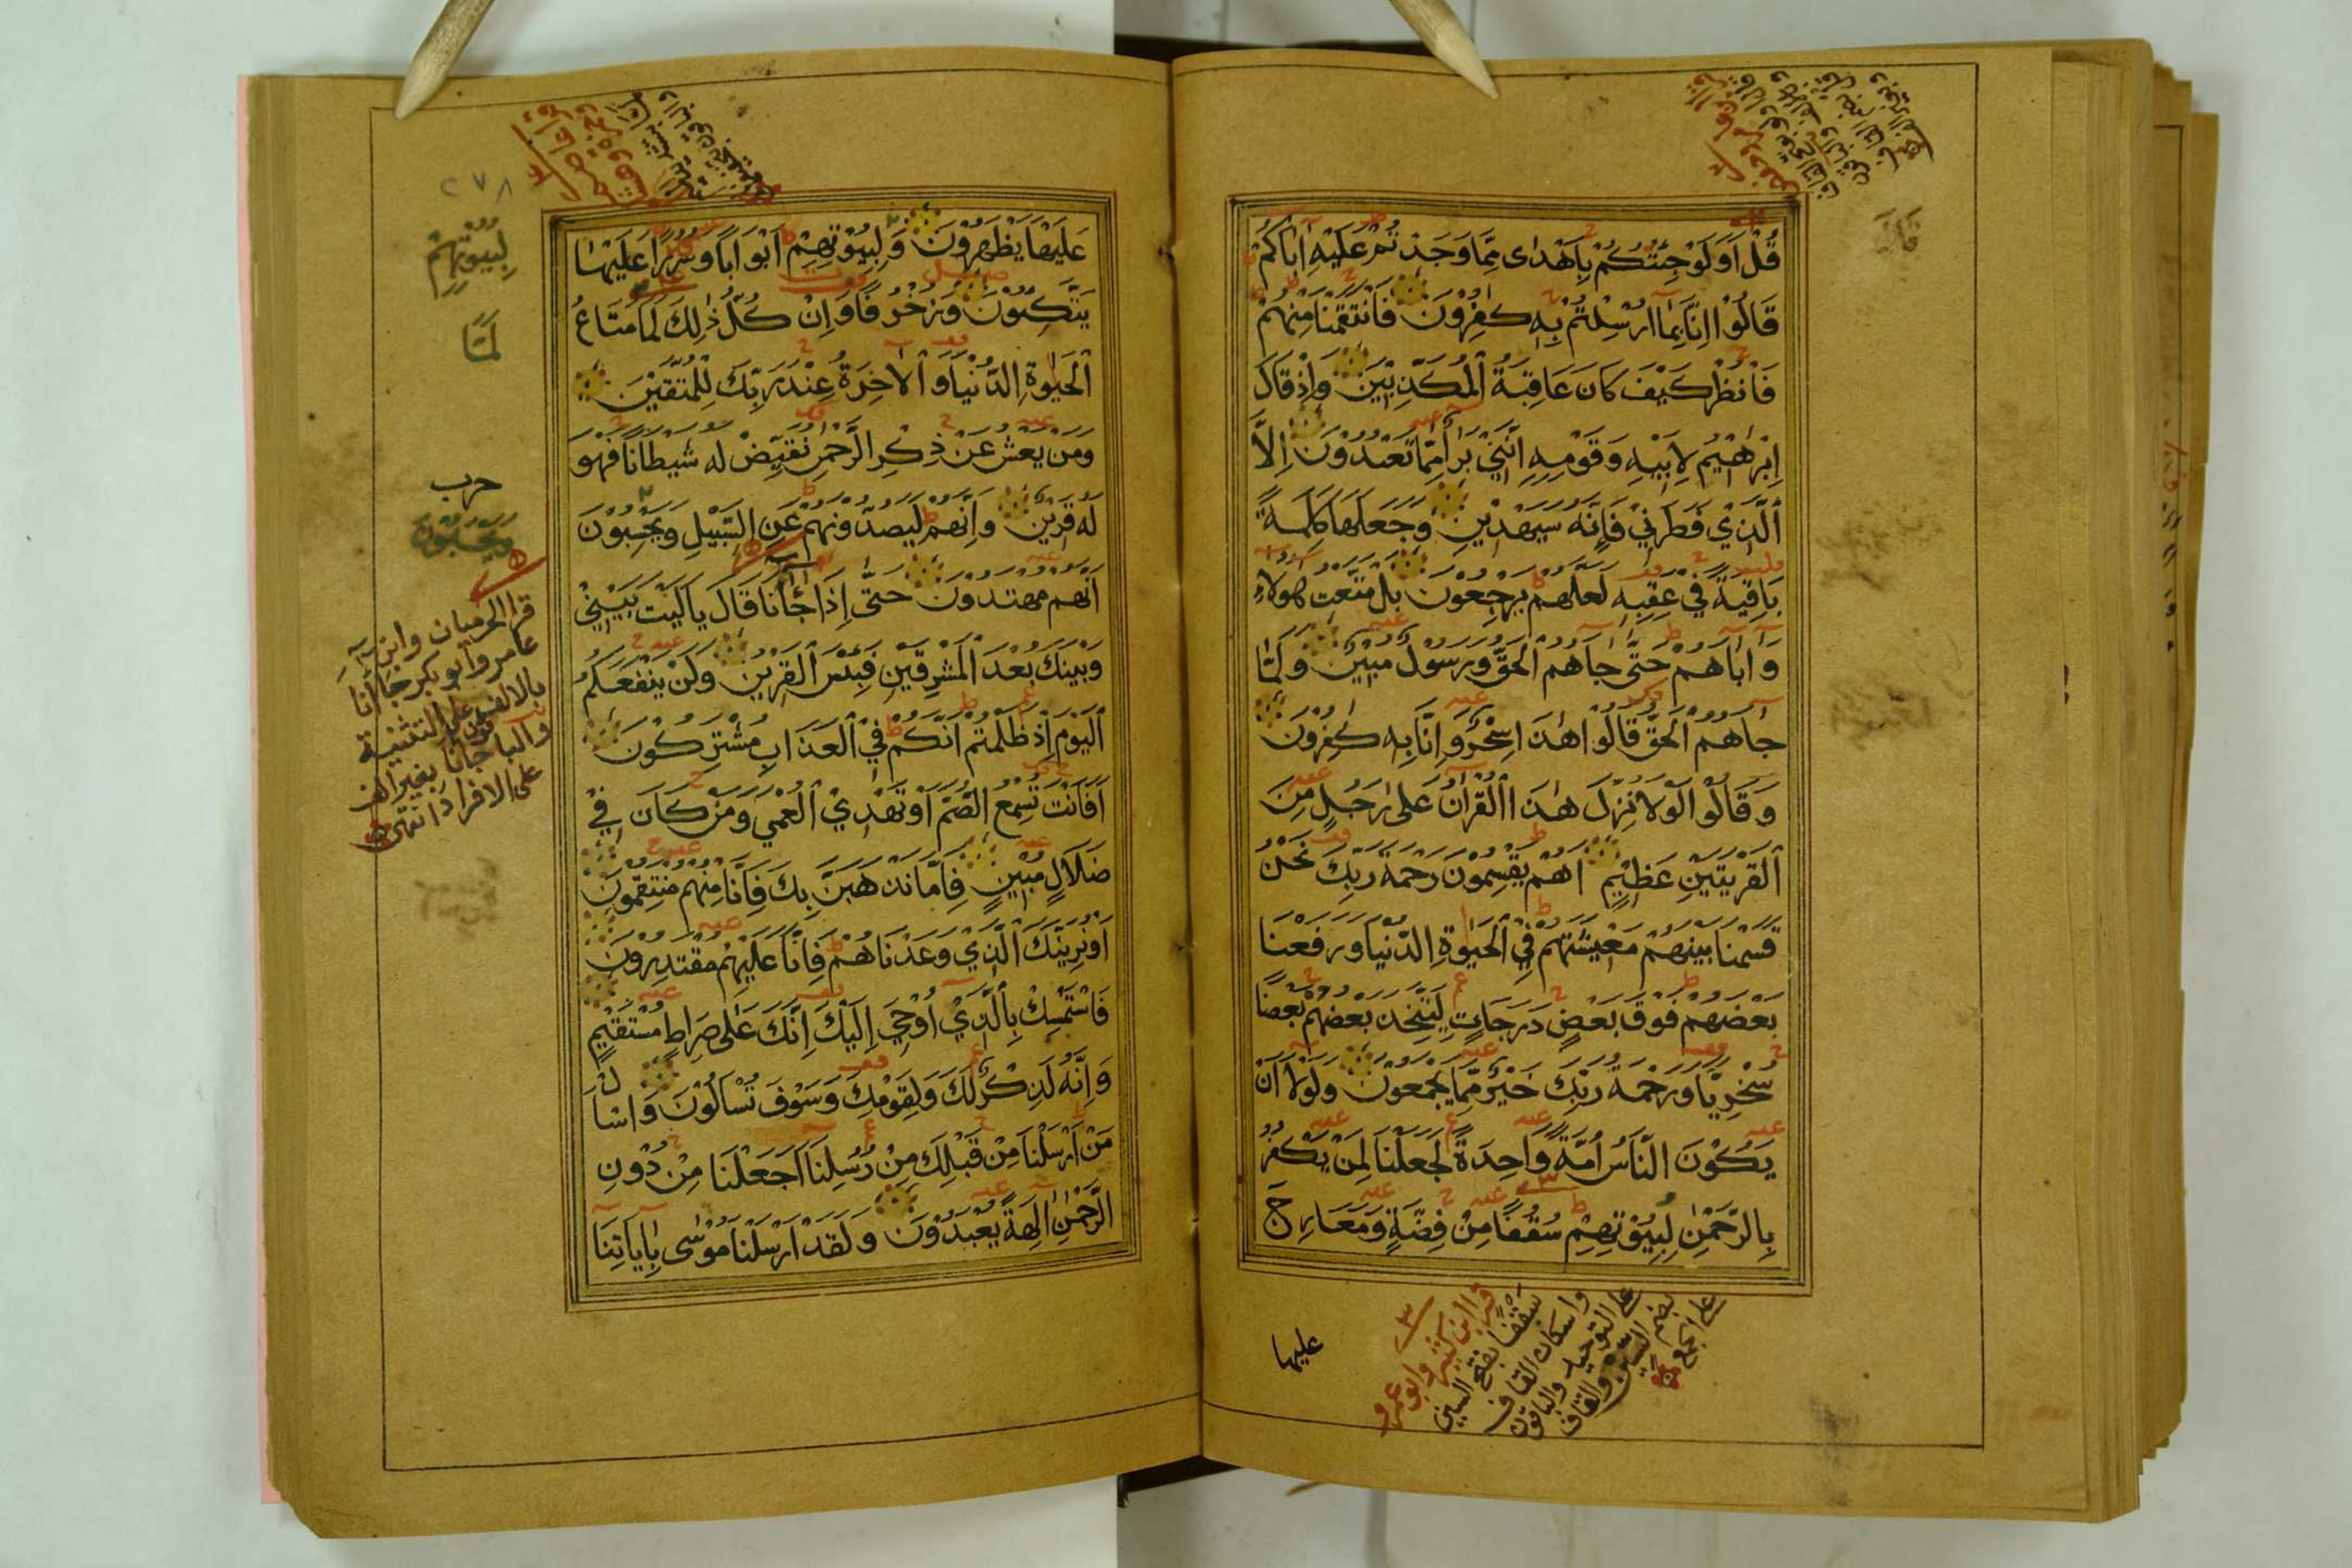 قُلْ اَوَلَوْ جِئْتُكُمْ بِاَهْدٰى مِمَّا وَجَدْتُمْ عَلَيْهِ اٰبَاكُمْ
قَالُوْا اِنَّا بِمَا اُرْسِلْتُمْ بِهٖ كٰفِرُوْنَ فَانْتَقَمْنَا مِنْهُمْ
فَانْظُرْ كَيْفَ كَانَ عَاقِبَةُ الْمُكَذِّبِيْنَ وَاِذْ قَالَ
اِبْرٰهِيْمُ لِاَبِيْهِ وَقَوْمِهٖ اِنَّنِيْ بَرَاءٌ مِمَّا تَعْبُدُوْنَ اِلَّا
الَّذِيْ فَطَرَنِيْ فَاِنَّهُ سَيَهْدِيْنِ وَجَعَلَهَا كَلِمَةً
بَاقِيَةً فِيْ عَقِبِهٖ لَعَلَّهُمْ يَرْجِعُوْنَ بَلْ مَتَّعْتُ هٰولَاءِ
وَاٰبَاءَهُمْ حَتّٰى جَاهُمُ الْحَقُّ وَرَسُوْلٌ مُبِيْنٌ وَلَمَّا
جَاهُمُ الْحَقُّ قَالُوْا هٰذَا سِحْرٌ وَاِنَّا بِهٖ كٰفِرُوْنَ
وَقَالُوْا لَوْلَا نُزِّلَ هٰذَا الْقُرْاٰنُ عَلٰى رَجُلٍ مِنَ
الْقَرْيَتَيْنِ عَظِيْمٍ اَهُمْ يَقْسِمُوْنَ رَحْمَةَ رَبِّكَ نَحْنُ
قَسَمْنَا بَيْنَهُمْ مَعِيْشَتَهُمْ فِي الْحَيٰوةِ الدُّنْيَا وَرَفَعْنَا
بَعْضَهُمْ فَوْقَ بَعْضٍ دَرَجَاتٍ لِيَتَّخِذَ بَعْضُهُمْ بَعْضًا
سُخْرِيًّا وَرَحْمَةُ رَبِّكَ خَيْرٌ مِمَّا يَجْمَعُوْنَ وَلَوْلَا اَنْ
يَكُوْنَ النَّاسُ اُمَّةً وَاحِدَةً لَجَعَلْنَا لِمَنْ يَكْفُرُ
بِالرَّحْمٰنِ لِبُيُوْتِهِمْ سُقُفًا مِنْ فِضَّةٍ وَمَعَارِجَ
٣
قرا ابن كثير وابو عمرو
سقفا بفتح السين
واسكان القاف
على التوحيد والباقون
بضم السين والقاف
على الجمع
عليها
٢٧٨
عَلَيْهَا يَظْهَرُوْنَ وَلِبُيُوْتِهِمْ اَبْوَابًا وَسُرُرًا عَلَيْهَا
يَتَّكِئُوْنَ وَزُخْرُفًا وَاِنْ كُلُّ ذٰلِكَ لَمَا مَتَاعُ
الْحَيٰوةِ الدُّنْيَا وَالْاٰخِرَةُ عِنْدَ رَبِّكَ لِلْمُتَّقِيْنَ
وَمَنْ يَعْشُ عَنْ ذِكْرِ الرَّحْمٰنِ نُقَيِّضْ لَهُ شَيْطَانًا فَهُوَ
لَهُ قَرِيْنٌ وَاِنَّهُمْ لَيَصُدُّوْنَهُمْ عَنِ السَّبِيْلِ وَيَحْسِبُوْنَ
اَنَّهُمْ مُهْتَدُوْنَ حَتّٰى اِذَا جَاٰنَا قَالَ يَا لَيْتَ بَيْنِيْ
وَبَيْنَكَ بُعْدَ الْمَشْرِقَيْنِ فَبِئْسَ الْقَرِيْنُ وَلَنْ يَنْفَعَكُمُ
الْيَوْمَ اِذْ ظَلَمْتُمْ اَنَّكُمْ فِي الْعَذَابِ مُشْتَرِكُوْنَ
اَفَاَنْتَ تُسْمِعُ الصُّمَّ اَوْ تَهْدِيْ الْعُمْيَ وَمَنْ كَانَ فِيْ
ضَلَالٍ مُبِيْنٍ فَاِمَّا نَذْهَبَنَّ بِكَ فَاِنَّا مِنْهُمْ مُنْتَقِمُوْنَ
اَوْ نُرِيَنَّكَ الَّذِيْ وَعَدْنَاهُمْ فَاِنَّا عَلَيْهِمْ مُقْتَدِرُوْنَ
فَاسْتَمْسِكْ بِالَّذِيْ اُوْحِيَ اِلَيْكَ اِنَّكَ عَلٰى صِرَاطٍ مُسْتَقِيْمٍ
وَاِنَّهُ لَذِكْرٌ لَكَ وَلِقَوْمِكَ وَسَوْفَ تُسْاَلُوْنَ وَاسْاَلْ
مَنْ اَرْسَلْنَا مِنْ قَبْلِكَ مِنْ رُسُلِنَا اَجَعَلْنَا مِنْ دُوْنِ
الرَّحْمٰنِ اٰلِهَةً يُعْبَدُوْنَ وَلَقَدْ اَرْسَلْنَا مُوْسٰى بِاٰيَاتِنَا
لِبُيُوْتِهِمْ
لَمَّا
حرب
وَيَحْسَبُوْنَ
قرا الحرميان وابن
عامر وابو بكر جاانا
بالالف على التثنية
والباقون جانا بغير الف
على الافراد انتهى